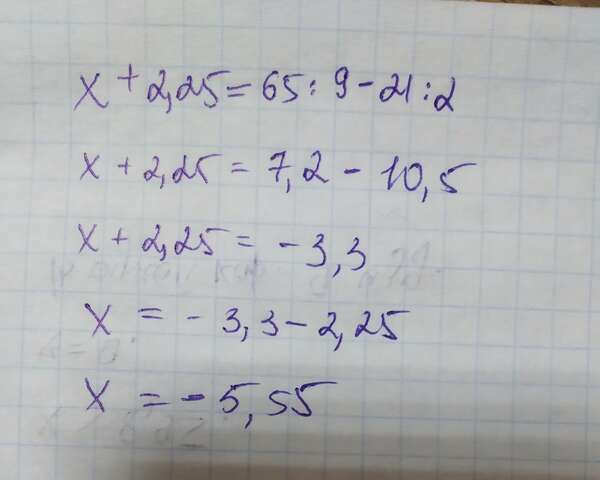 x + 2,25 = 65 : 9 - 21 : 2
x + 2,25 = 7,2 - 10,5
x + 2,25 = - 3,3
x = - 3,3 - 2,25
x = - 5,55